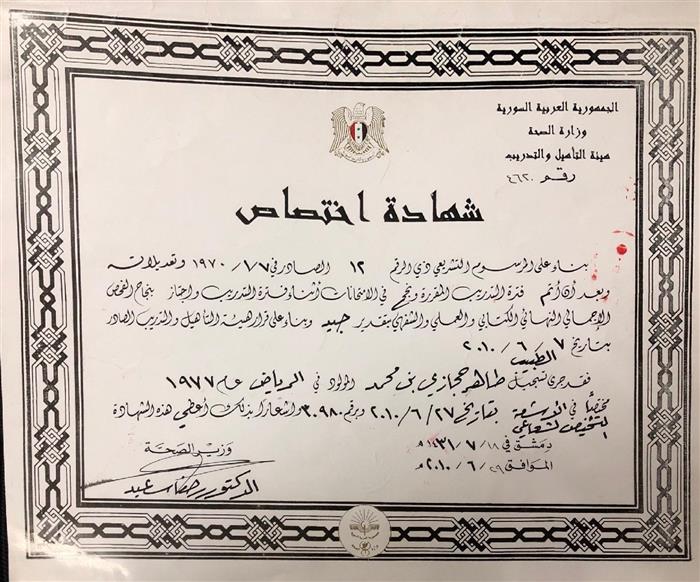 الجمهورية العربية السورية
وزارة الصحة
هيئة التأهيل والتدريب
رقم ٤٦٢٠
شهادة اختصاص
بناء على المرسوم التشريعي ذي الرقم ١٢ الصادر في ١/٧/ ١٩٧٠ وتعديلاته
وبعد أن أتم فترة التدريب المقررة ونجح في الامتحانات أثناء فترة التدريب واجتاز بنجاح الفحص
الإجمالي النهائي الكتابي والعملي والشفهي بتقدير جيد وبناء على قرار هيئة التأهيل والتدريب الصادر
بتاريخ ٧ / ٦ / ٢٠١٠
فقد جرى تسجيل الطبيب طاهر حجازي بن محمد المولود في الرياض عام ١٩٧٧
مختصاً في الأشعة التشخيص الشعاعي بتاريخ ٢٧ / ٦ / ٢٠١٠ وبرقم ٣٠٩٨٠ وإشعاراً بذلك أعطي هذه الشهادة
دمشق في ١٨ / ٧ / ١٤٣١ هـ
الموافق ٢٩ / ٦ / ٢٠١٠ م
وزير الصحة
الدكتور رضا سعيد